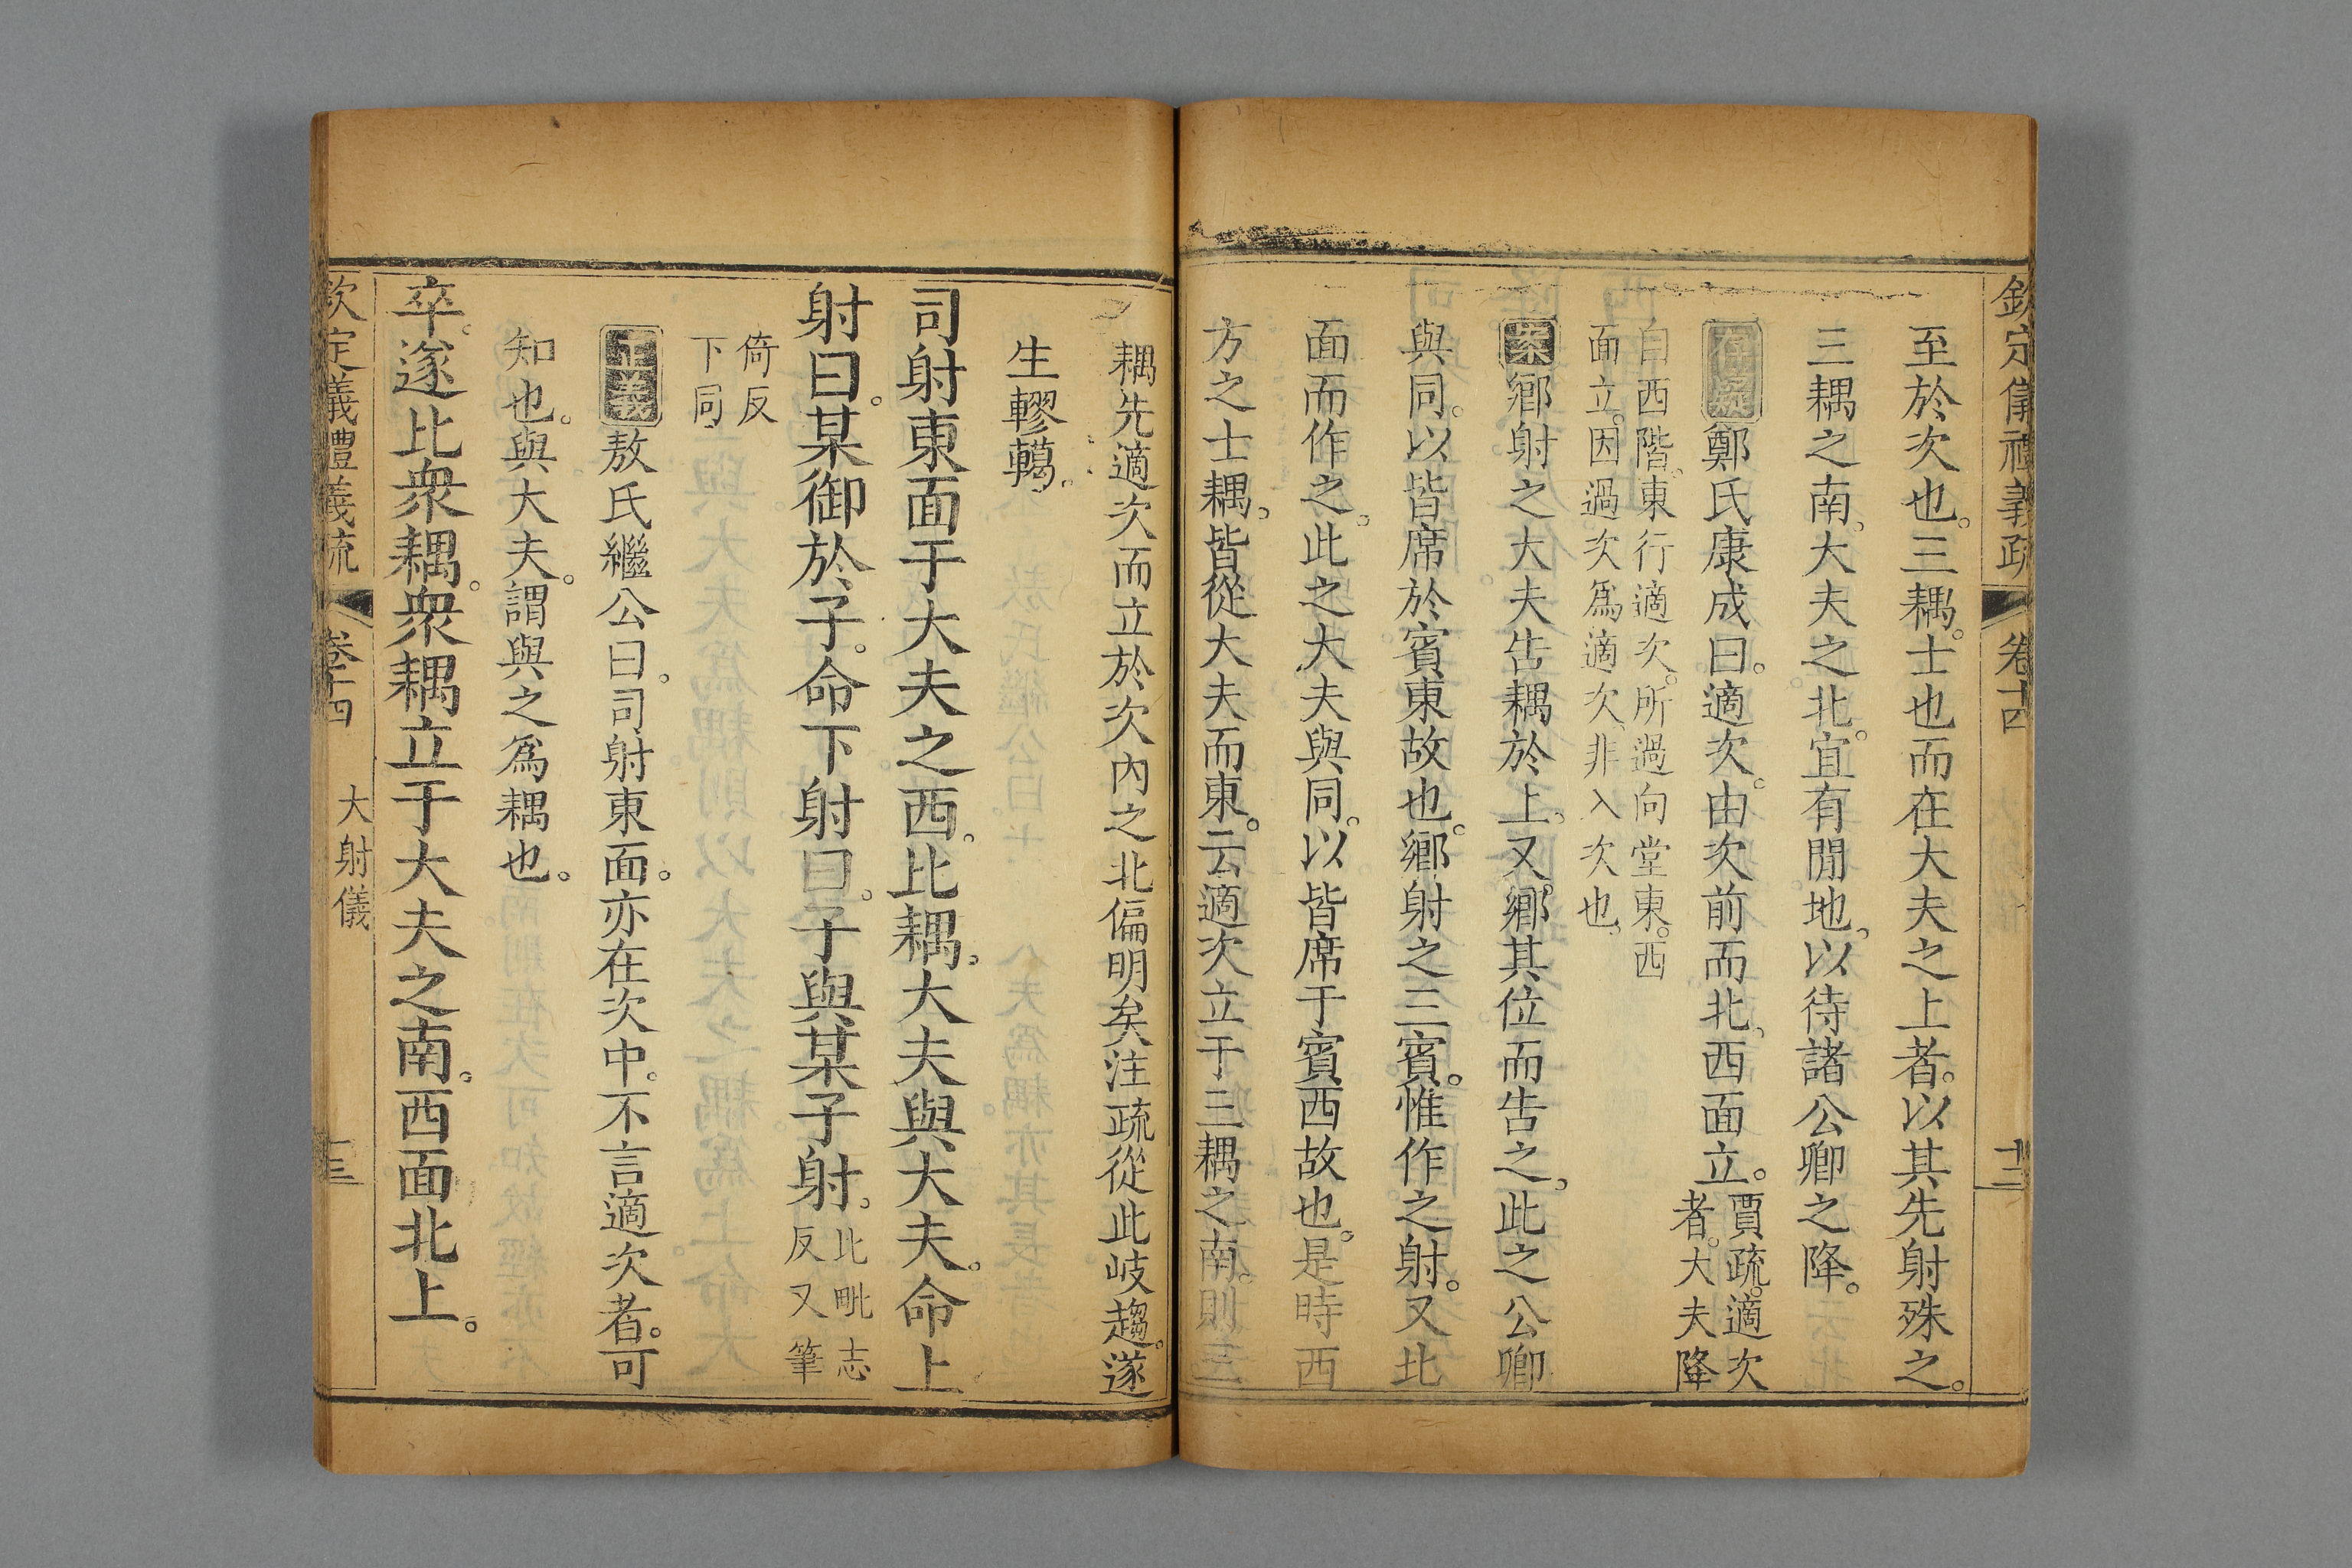 欽定儀禮義疏 卷十四 十二
至於次也。三耦。士也而在大夫之上者。以其先射殊之。
三耦之南、大夫之北。宜有閒地、以待諸公卿之降。
存疑鄭氏康成曰。適次。由次前而北、西面立。賈疏。適次
者。大夫降
自西階、東行適次。所過向堂東。西
面立。因過次爲適次、非入次也、
案鄉射之大夫告耦於上。又鄉其位而告之、此之公卿
與同。以皆席於賓東故也。鄉射之三賓。惟作之射。又北
面而作之。此之大夫與同。以皆席于賓西故也。是時西
方之士耦、皆從大夫而東。云適次立于三耦之南。則三
耦先適次而立於次內之北偏明矣注疏從此岐趨。遂
生轇轕。
司射東面于大夫之西。比耦。大夫與大夫。命上
射曰。某御於子。命下射曰。子與某子射。比毗志
反又筆
倚反
下同
正義敖氏繼公曰。司射東面。亦在次中。不言適次者。可
知也。與大夫。謂與之爲耦也。
卒。遂比衆耦。衆耦立于大夫之南。西面北上。
欽定儀禮義疏 卷十四 大射儀 十三